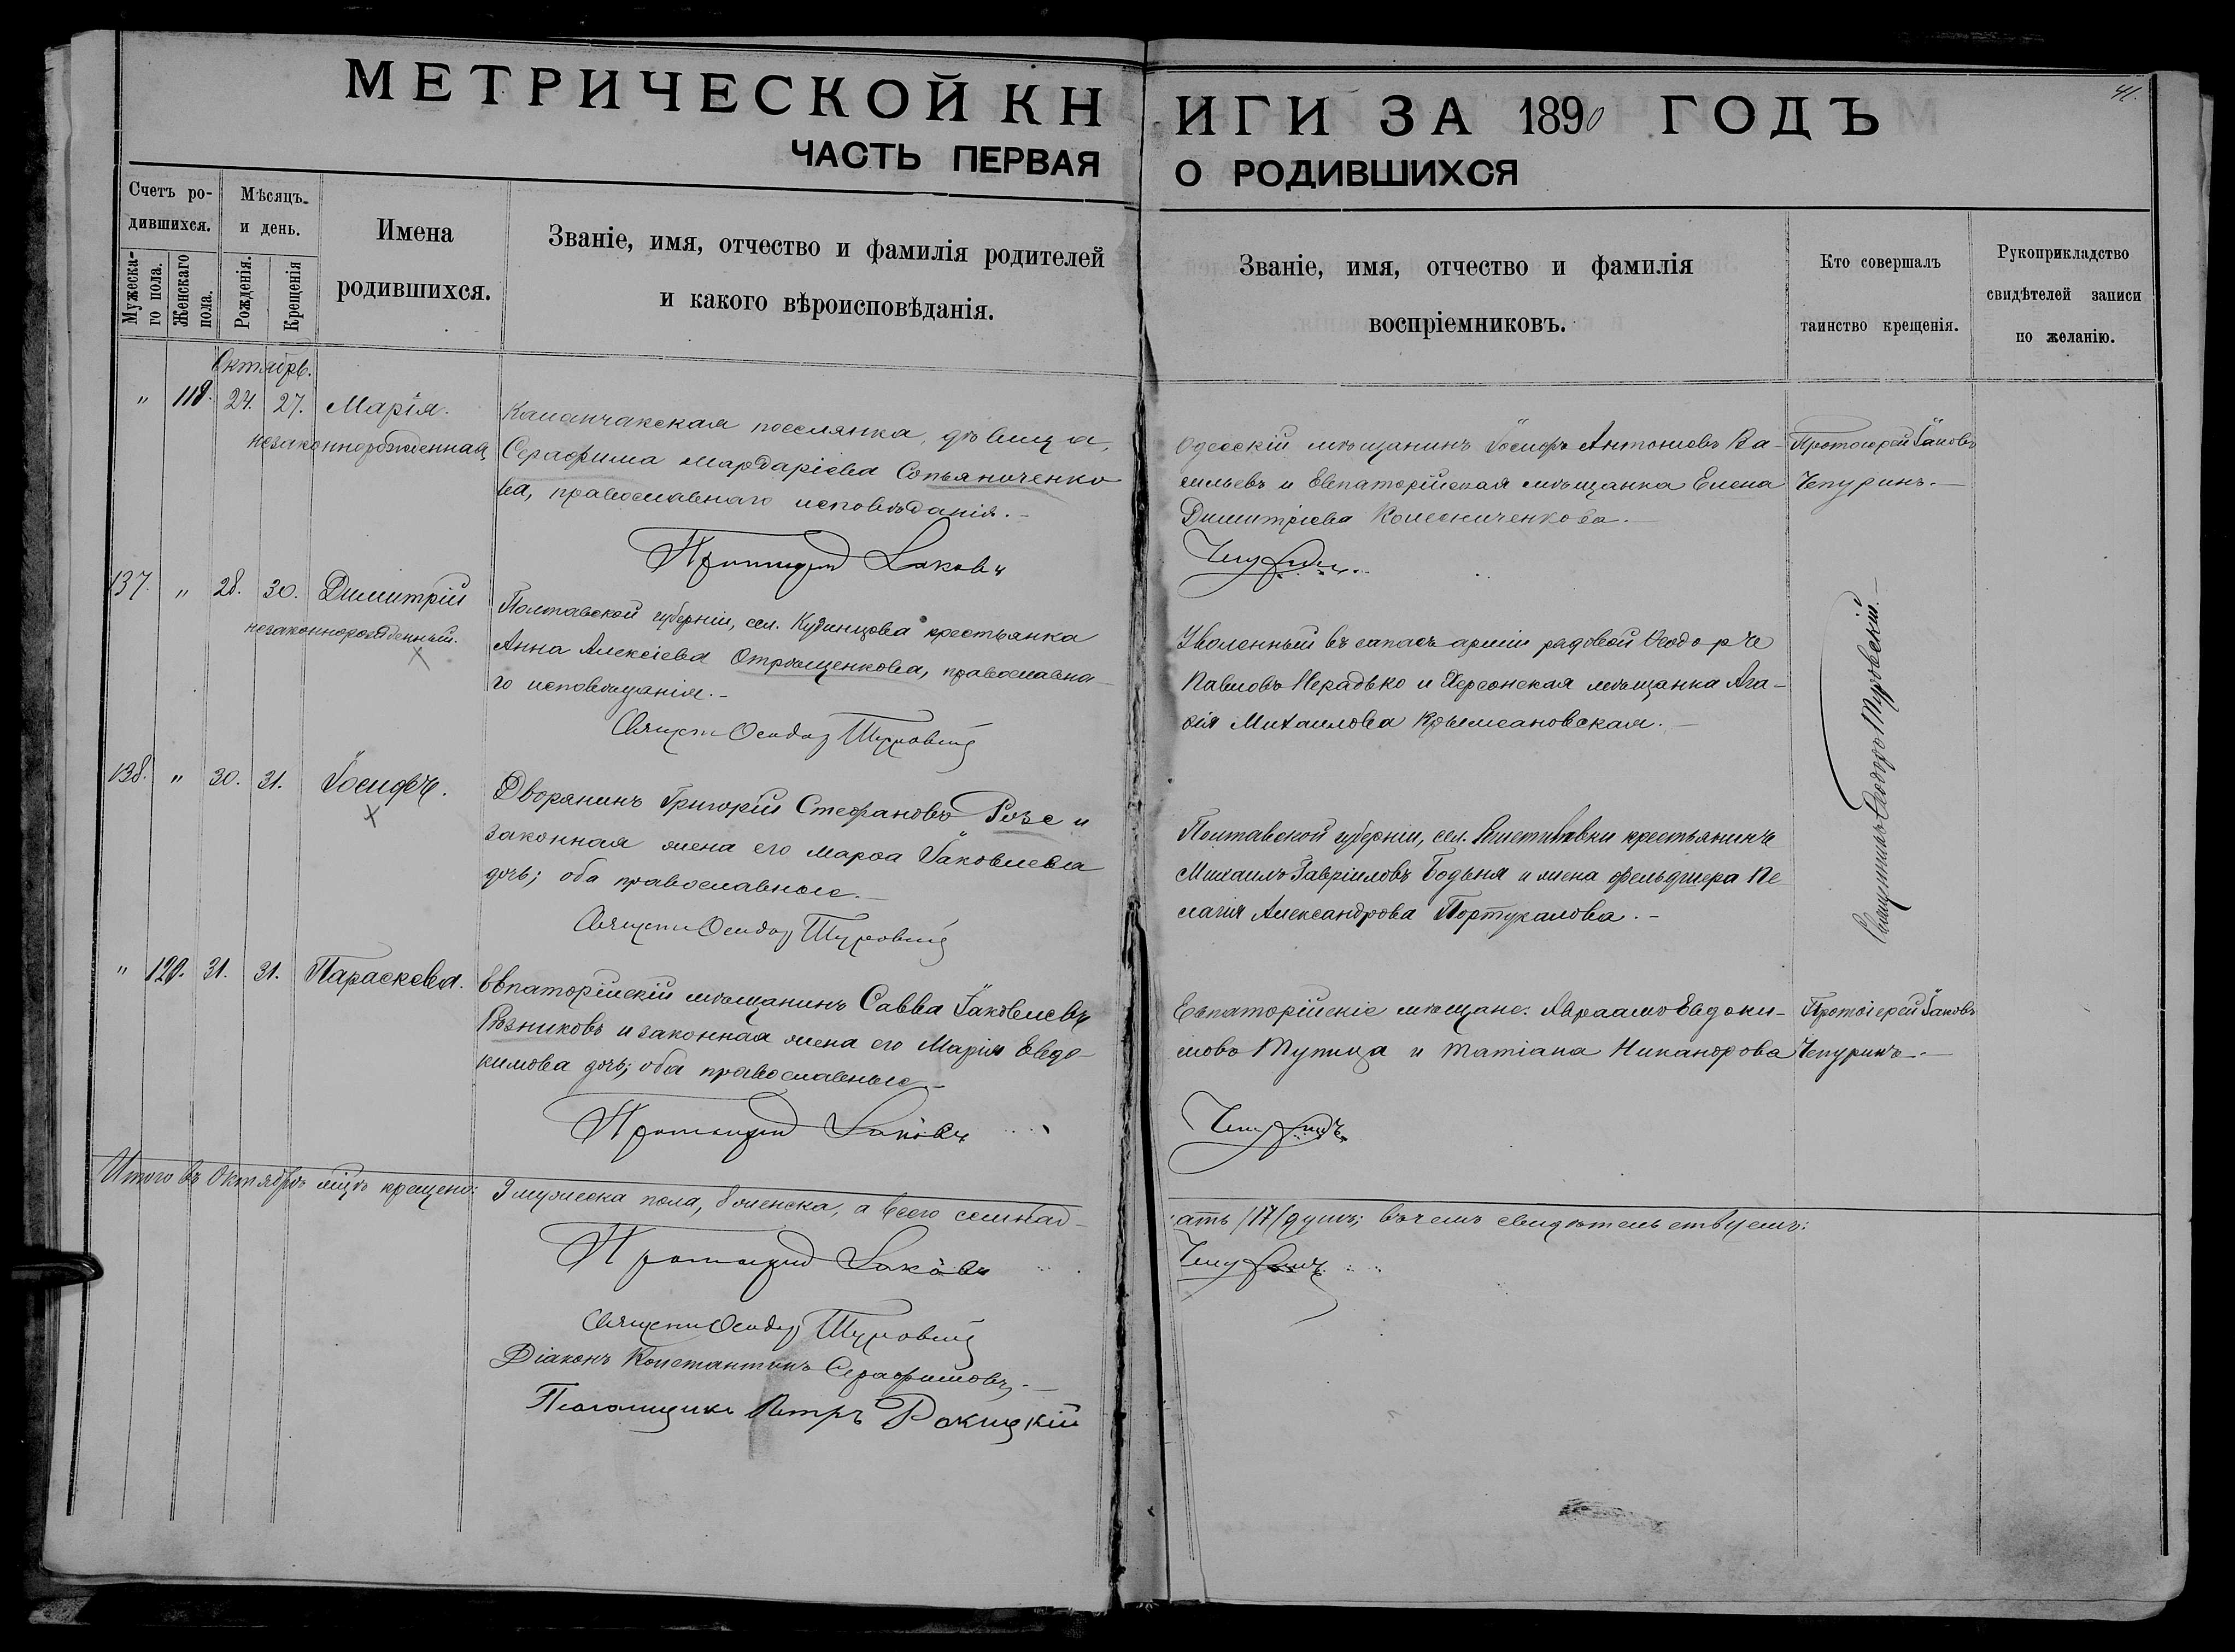 МЕТРИЧЕСКОЙ КНИГИ ЗА 1890 ГОДЪ
41.
ЧАСТЬ ПЕРВАЯ О РОДИВШИХСЯ
Счетъ родившихся.
Мужеска-
го пола.
Женскаго
пола.
Мѣсяцъ
и день.
Рожденія.
Крещенія
Имена
родившихся.
Званіе, имя, отчество и фамилія родителей
и какого вѣроисповѣданія.
Званіе, имя, отчество и фамилія
воспріемниковъ.
Кто совершалъ
таинство крещенія.
Рукоприкладство
свидѣтелей записи
по желанію.
Октябрь.
" 119. 24. 27. Марія.
незаконнорожденная
Каланчакская поселянка, дѣвица,
Серафима Мардаріева Сопьяниченко
ва, православнаго исповѣданія.-
Одесскій мѣщанинъ Іосифъ Антоніевъ Ва-
сильевъ и Евпаторійская мѣщанка Елена
Димитріева Колесниченкова.-
Протоіерей Іаковъ
Чепуринъ.-
Протоіерей Іаковъ Чепуринъ
137. " 28. 30. Димитрій
незаконнорожденный.
Полтавской губерніи, сел. Кудинцова крестьянка
Анна Алексіева Отрѣщенкова, православна-
го исповѣданія.-
Уволенный въ запасъ арміи рядовой Ѳеодоръ
Павловъ Нерадько и Херсонская мѣщанка Ага-
ѳія Михаилова Крыжановская.-
Священникъ Ѳеодоръ Туровскій.-
Священ. Ѳеодоръ Туровскій
138. " 30. 31. Іосифъ.
Дворянинъ Григорій Стефановъ Розе и
законная жена его Марѳа Іаковлева
дочь; оба православные.-
Полтавской губерніи, сел. Решетиловки крестьянинъ
Михаилъ Гавріиловъ Бодьня и жена фельдшера Пе
лагія Александрова Португалова.-
Священ. Ѳеодоръ Туровскій
" 120. 31. 31. Параскева.
Евпаторійскій мѣщанинъ Савва Іаковлевъ
Рѣзниковъ и законная жена его Марія Евдо-
кимова дочь; оба православные.-
Евпаторійскіе мѣщане: Авраамъ Евдоки-
мовъ Тупица и Татіана Никанорова
Протоіерей Іаковъ
Чепуринъ.-
Протоіерей Іаковъ Чепуринъ
Итого въ Октябрѣ м-цѣ крещено: 9 мужеска пола, 8 женска, а всего семнад-
ать /17/ душъ; въ чемъ свидѣтельствуемъ:
Протоіерей Іаковъ Чепуринъ
Священ. Ѳеодоръ Туровскій
Діаконъ Константинъ Серафимовъ.-
Псаломщикъ Петръ Рокицкій